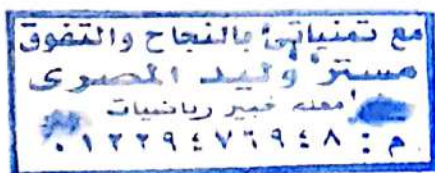 مع تمنياتى بالنجاح والتفوق
مستر وليد المصرى
خبير رياضيات
م : ٠١٢٢٩٤٧٦٩٤٨